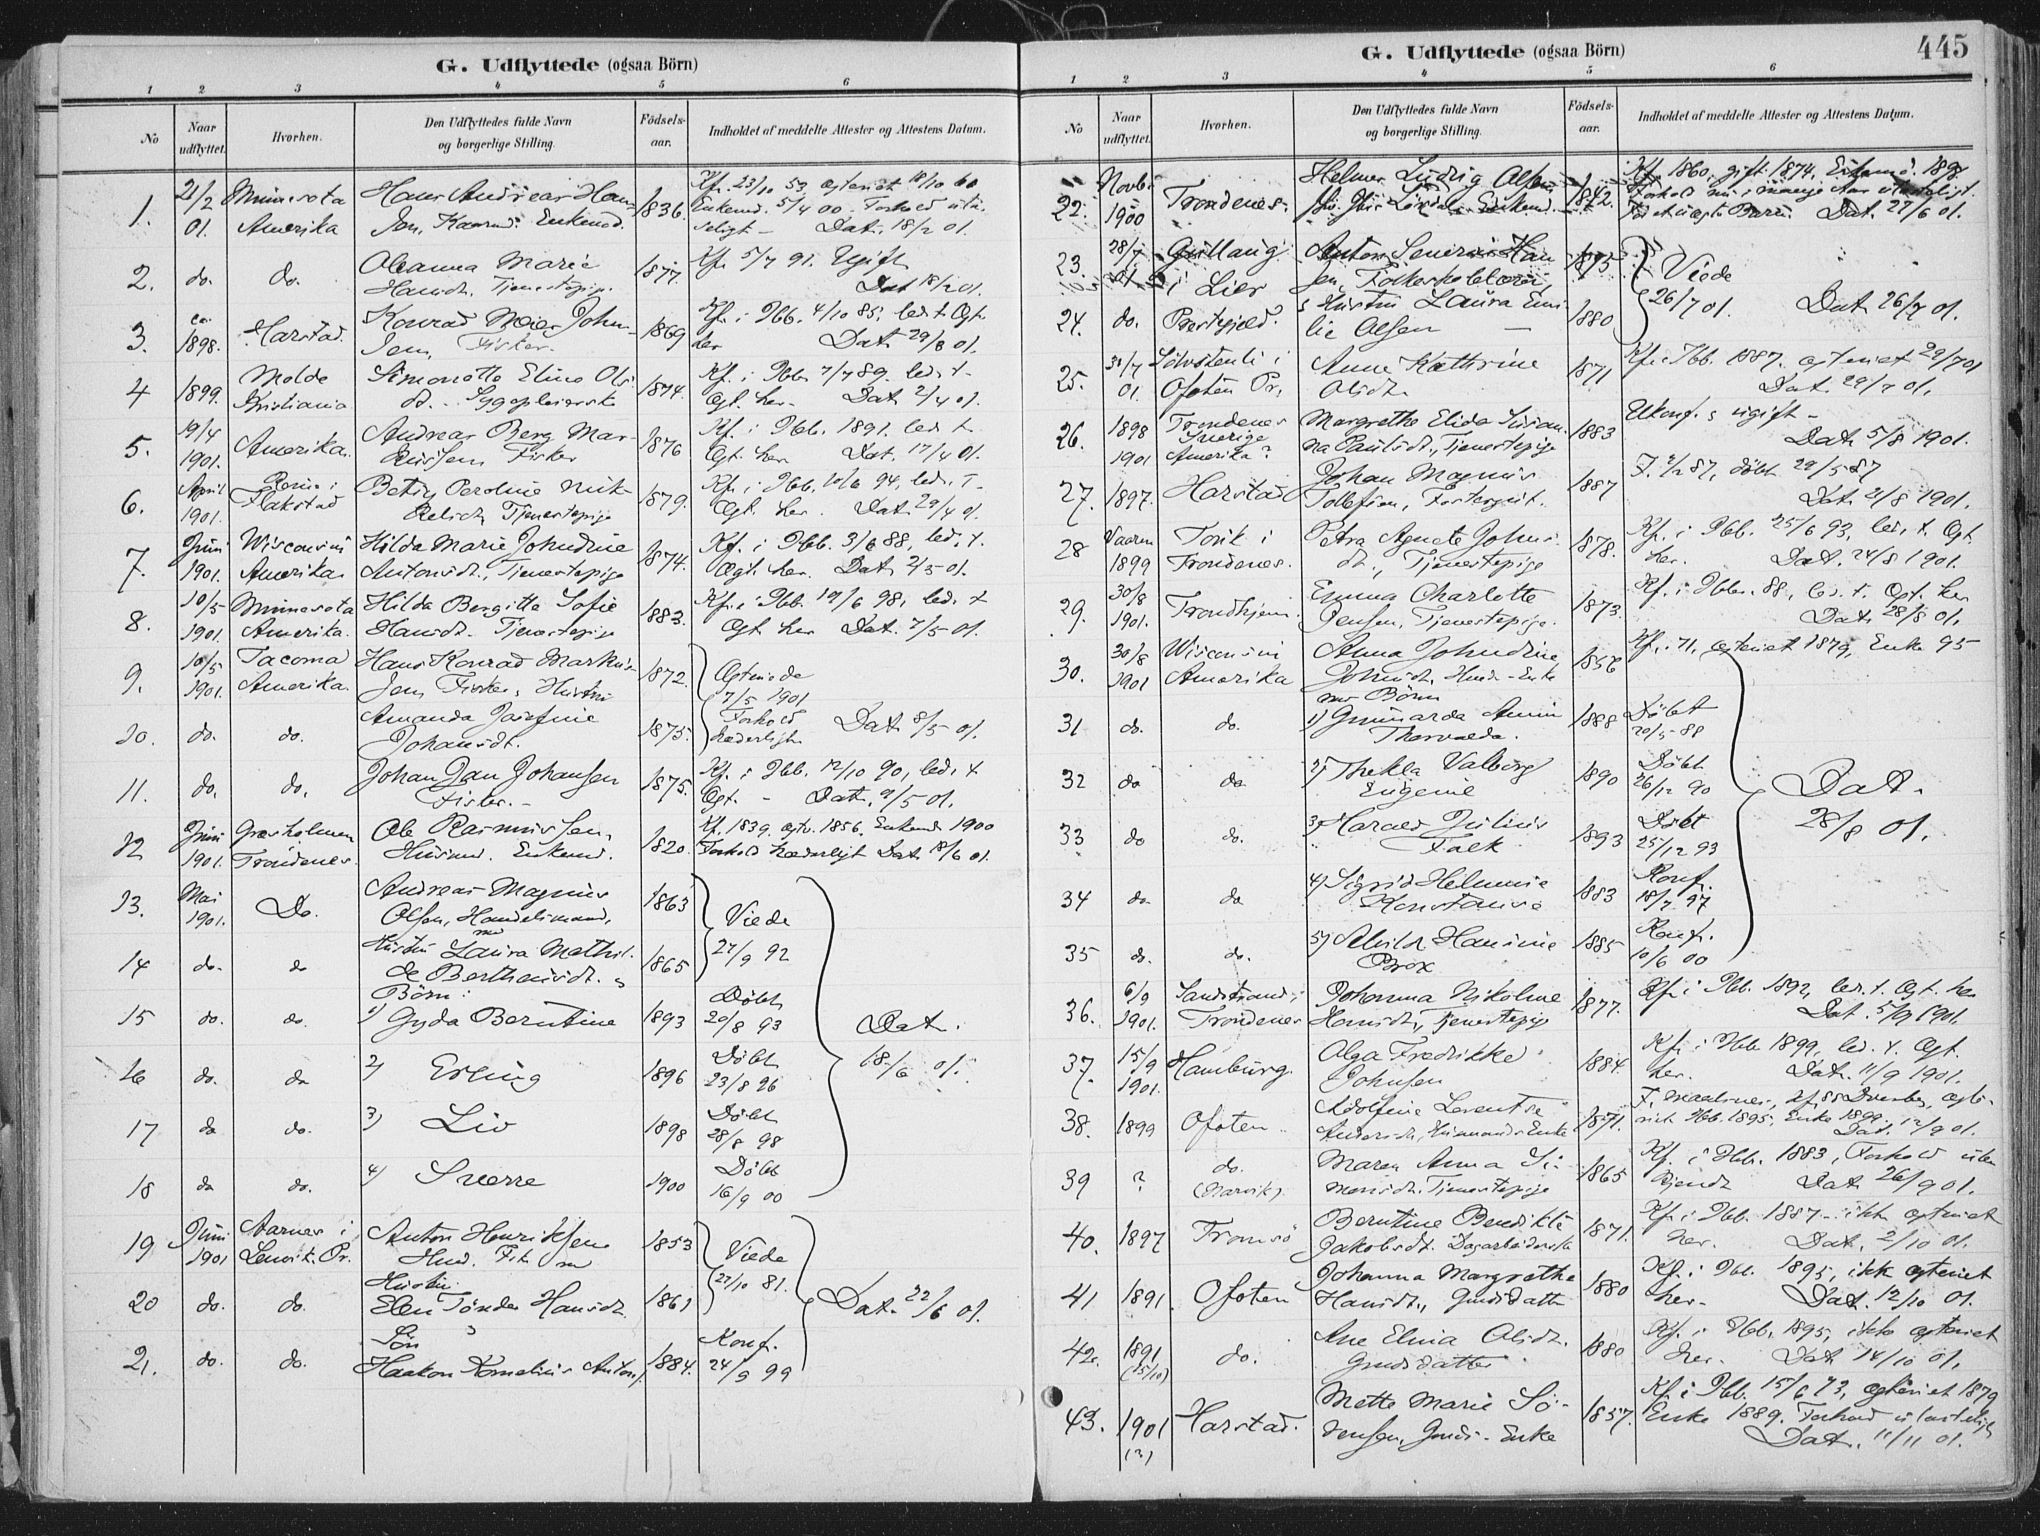 G. Udflyttede (ogsaa Börn)
1 2 3 4 5 6
No
Naar udflyttet.
Hvorhen.
Den Udflyttedes fulde Navn
og borgerlige Stilling.
Födsels-
aar.
Indholdet af meddelte Attester og Attestens Datum.
1. 21/2 01. Minnesota Amerika Hans Andreas Han-
sen, Enkemd. 1836. Kf. 23/10 53, egteviet 18/10 60
Enkemd. 5/4 00. Forhold
Dat. 18/2 01.
2. do. do. Oleanna Marie
Hansdt. Tjenestepige. 1877. Kf. 5/7 91. Ugift
Dat 18/2 01.
3. 1898. Harstad. Konrad Meier John-
sen, Fisker. 1869 Kf. i Ibb. 4/10 85, led. t. Egt.
her Dat. 29/3 01.
4 1899. Molde Kristiania Simonette Eline Ols-
dt. 1874. Kf. i Ibb. 7/7 89. led. t.
Egt. her. Dat. 2/4 01.
5. 19/4 1901. Amerika. Andreas Berg Mar-
kussen, Fisker 1876 Kf. i Ibb. 1891. led. t.
Egt. her Dat. 17/4 01.
6. April 1901. Flakstad Betsy Peroline Mik-
kelsdt., Tjenestepige 1879. Kf. i Ibb. 10/6 94, led. t.
Egt. her. Dat. 29/4 01.
7. Juni 1901. Wisconsin Amerika. Hilda Marie Johndine
Antonsdt., Tjenestepige 1874. Kf. i Ibb. 3/6 88, led. t.
Egt. her. Dat. 2/5 01.
8. 10/5 1901. Minnesota Amerika. Hilda Bergitta Sofie
Hansdt. Tjenestepige 1883. Kf. i Ibb. 19/6 98, led. t
Egt her Dat. 7/5 01.
9. 10/5 1901. Tacoma Amerika. Hans Konrad Markus-
sen, Fisker, Hustru 1872. Egteviede
7/5 1901
10. do. do. Amanda Josefine
Johansdt. 1875. Forhold
hæderligt Dat. 8/5 01.
11. do. do. Johan Dan Johansen
Fisker. 1875. Kf. i Ibb. 12/10 90, led. t
Egt. - Dat. 9/5 01.
12 Juni 1901. Græsholmen Trondenes. Ole Rasmussen,
Husmd. Enkemd. 1820. Kf. 1839. egtv. 1856. Enkemd 1900
Forhold hæderligt Dat. 18/6 01.
13. Mai 1901. Do. Andreas Magnus
Olsen, Handelsmand, 1863 Viede
27/9 92
14 do. do Hustru Laura Mathil-
de Berthausdt. 1865
Börn:
15 do. do. 1) Gyda Berntine 1893 Döbt
20/8 93
16 do. do 2) Erling 1896 Döbt
23/8 96
Dat.
18/6 01.
17 do do. 3) Liv 1898 Döbt
28/8 98
18 do do. 4) Sverre 1900 Döbt
16/9 00
19 Juni 1901 Aarnes i Lenvik Pr. Anton Henriksen
Husd. Fisk. 1853 Viede
22/10 81.
20 do. do. Hustru
Elen Tönder Hansdt. 1861
Dat. 22/6 01.
21. do. do. Sön
Haakon Kornelius Antons. 1884. Konf.
24/9 99
G. Udflyttede (ogsaa Börn) 445
1 2 3 4 5 6
No
Naar udflyttet.
Hvorhen.
Den Udflyttedes fulde Navn
og borgerlige Stilling.
Födsels-
aar.
Indholdet af meddelte Attester og Attestens Datum.
22. Novbr. 1900 Trondenes. Helmer Ludvig Olsen,
Enkemd. 1842. Kf. 1860, gift 1874. Enkemd. 1898
Dat. 27/6 01.
23. 28/7 01. i Lier Anton Severin Han-
sen, Folkeskolelærer, 1875 Viede
26/7 01. Dat. 26/7 01.
24. do. Prestegjeld. Hustru Laura Emi-
lie Olsen 1880
25. 31/7 01. i Ofoten Pr. Anne Kathrine
Olsdt. 1871 Kf. i Ibb. 1887. egteviet 29/7 01
Dat. 29/7 01.
26. 1898 1901 Trondenes Sverige Amerika? Margrethe Elida Susan-
na Paulsdt., Tjenestepige 1883 Ukonf. ugift -
Dat 5/8 1901.
27. 1897. Harstad Johan Magnus
Tollefsen, Fostergut. 1887 F. 2/2 87, döbt 29/5 87
Dat. 2/8 1901.
28 Vaaren 1899 Torik i Trondenes. Petra Agnete Johns-
dt., Tjenestepige 1878. Kf. i Ibb. 25/6 93, led. t. Egt.
her. Dat. 24/8 1901.
29. 30/8 1901. Trondhjem. Emma Charlotte
Jensen, Tjenestepige. 1873. Kf. i Ibb. 88, led. t. Egt. her
Dat. 28/8 01.
30. 30/8 1901 Wisconsin Amerika Anna Johndine
Johnsdt. Husm. Enke 1856 Kf. 71, egteviet 1879, Enke 95
Börn
31 do. do. 1) Gunnarda Annie
Thorvalda. 1888 Döbt
20/5 88
32 do do 2) Thekla Valborg
Eugenie 1890 Döbt
26/12 90
33 do do. 3) Harald Julius
Falk 1893 Döbt
25/12 93
Dat.
28/8 01.
34 do do 4) Sigrid Helmine
Konstanse 1883 Konf.
18/7 97
35 do. do. 5) Alvilde Hansine
Brox 1885 Konf.
10/6 00
36. 6/9 1901. Sandstrand i Trondenes Johanna Nikoline
Hansdt., Tjenestepige 1877. Kf. i Ibb. 1892, led. t. Egt. her
Dat. 5/9 1901.
37. 15/9 1901. Hamburg. Olga Fredrikke
Johnsen 1884. Kf. i Ibb. 1899, led. t. Egt.
her. Dat. 11/9 1901.
38. 1899 Ofoten Adolfine Lorentse
Andersdt., Husmands Enke 1871. F. Maalsnes, kf. 88 Dverberg, egte-
viet Ibb. 1895, Enke 1899. Dat. 12/9 01.
39 ? do. (Narvik). Maren Anna Si-
monsdt. Tjenestepige 1865 Kf. i Ibb. 1883, Forhold uben
kjendt Dat 26/9 01.
40. 1897 Tromsö Berntine Bendikte
Jakobsdt. Dagarbeiderske 1871. Kf. i Ibb. 1887 - ikke egteviet
her. Dat. 2/10 01.
41 1891. Ofoten Johanna Margrethe
Hansdt., Gmdsdatter 1880 Kf. i Ibb. 1895, ikke egteviet
her. Dat. 12/10 01.
42. 1891 (15/10) do. Ane Elina Olsdt.
Gmdsdatter 1880 Kf. i Ibb. 1895, ikke egteviet
her. Dat 14/10 01.
43. 1901 (?) Harstad. Mette Marie Sö-
rensen, Gmds. Enke 1857. Kf. i Ibb. 15/6 73, egteviet 1879
Enke 1889. Forhold ulastelig
Dat. 11/11 01.